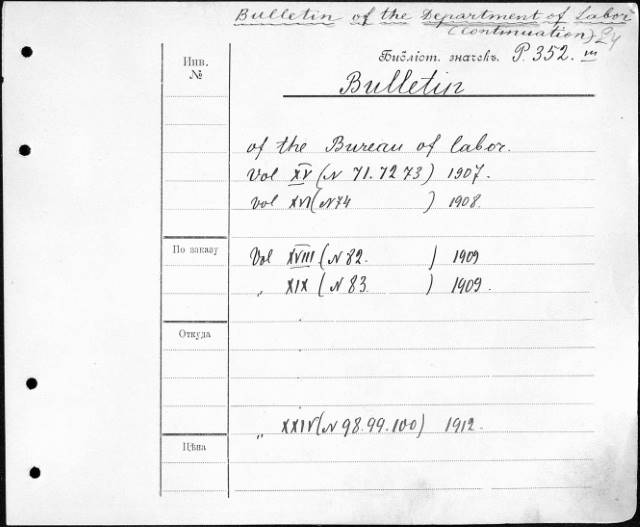 Bulletin of the Department of Labor
(continuation) 24
Инв.
№
Библіот. значекъ. P. 352. III
Bulletin
of the Bureau of labor.
Vol XV (N 71. 72 73) 1907.
Vol XVI (N 74 ) 1908.
По заказу
Vol XVIII (N 82. ) 1909
„ XIX (N 83. ) 1909.
Откуда
„ XXIV (N 98. 99. 100) 1912.
Цѣна